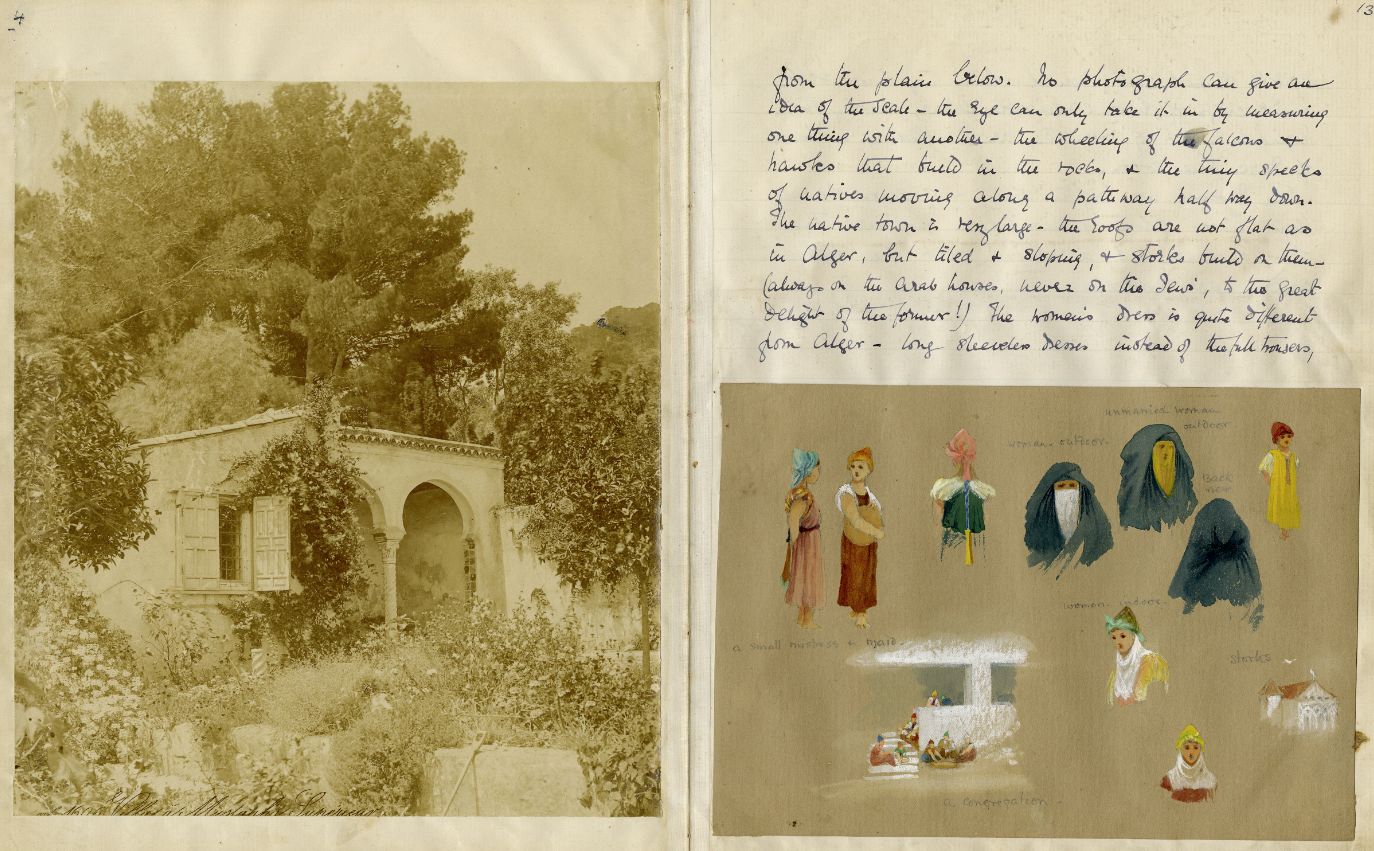 4
Mustapha Supérieur
13
from the plain below. No photograph can give an
idea of the scale - the eye can only take it in by measuring
one thing with another - the wheeling of the falcons &
hawks that build in the rocks, & the tiny specks
of natives moving along a pathway half way down.
The native town is very large - the roofs are not flat as
in Alger, but tiled & sloping, & storks build on them -
(always on the Arab houses, never on the Jews', to the great
delight of the former!) The women's dress is quite different
from Alger - long sleeveless dresses instead of the full trousers,
unmarried woman
outdoor
woman. outdoor.
Back
view
woman. indoor.
a small mistress & maid.
storks
a congregation.